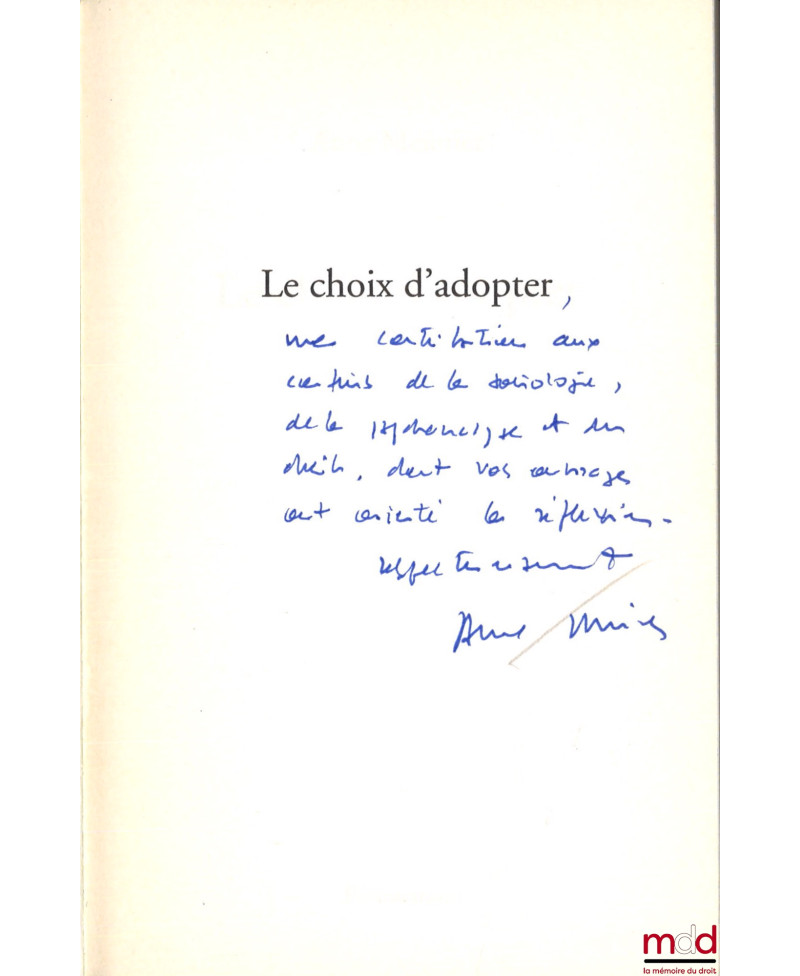 Le choix d'adopter,
une contribution aux
confins de la sociologie,
de la psychanalyse et du
droit, dont vos ouvrages
ont orienté la réflexion.
respectueusement
Anne
mdd
la mémoire du droit